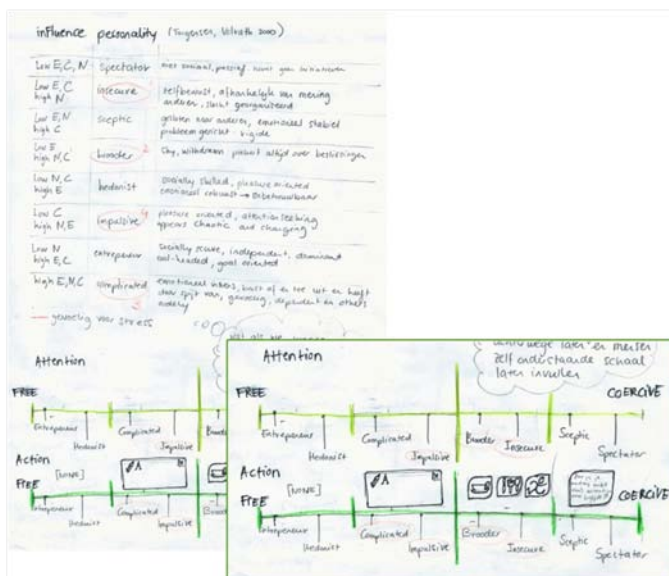 influence personality (Torgersen, Vollrath 2000)
Low E, C, N spectator niet sociaal, passief
Low E, C high N insecure zelfbewust, afhankelijk van mening
anderen, slecht georganiseerd
Low E, N high C sceptic anderen, emotioneel stabiel
probleem gericht - rigide
Low E high N, C brooder 2 shy, withdrawn altijd over beslissingen
Low N, C high E hedonist socially skilled, pleasure oriented
emotional robuust → onbetrouwbaar
Low C high N, E impulsive 4 pleasure oriented, attention seeking
appears chaotic and changing
Low N high E, C entrepeneur socially secure, independent, dominant
cool-headed, goal oriented
high E, N, C complicated 3 emotioneel intens, barst af en toe uit en heeft
daar spijt van, gevoelig, dependent on others
orderly
— gevoelig voor stress
Attention
FREE
Entrepeneur
Hedonist
Complicated
Impulsive
Brooder
Action
[NONE]
A
FREE
Entrepeneur
Hedonist
Complicated
Impulsive
later en mensen
zelf onderstaande schaal
later invullen
Attention
FREE COERCIVE
Entrepeneur
Hedonist
Complicated
Impulsive
Brooder
Insecure
Sceptic
Spectator
Action
[NONE]
A
FREE COERCIVE
Entrepeneur
Hedonist
Complicated
Impulsive
Brooder
Insecure
Sceptic
Spectator